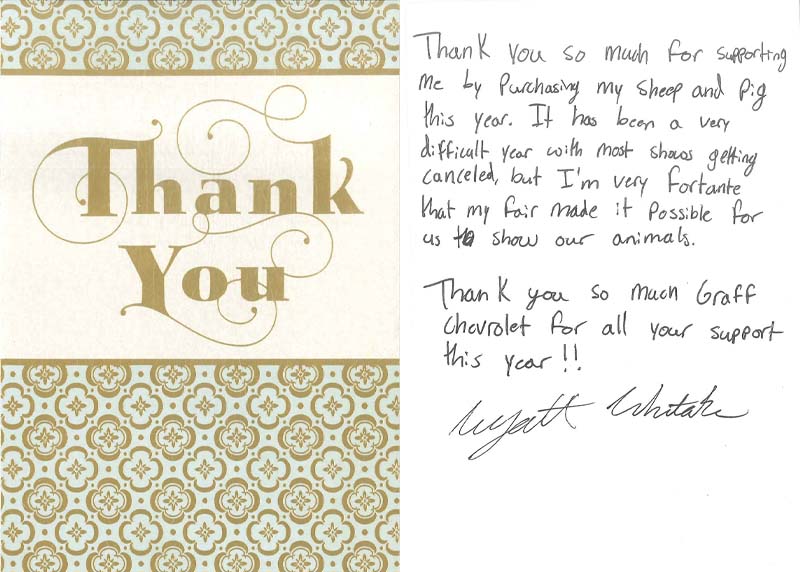 Thank
You
Thank you so much for supporting
me by Purchasing my sheep and pig
this year. It has been a very
difficult year with most shows getting
canceled, but I'm very fortante
that my fair made it possible for
us to show our animals.
Thank you so much Graff
Chevrolet for all your support
this year!!
Wyatt Whitake